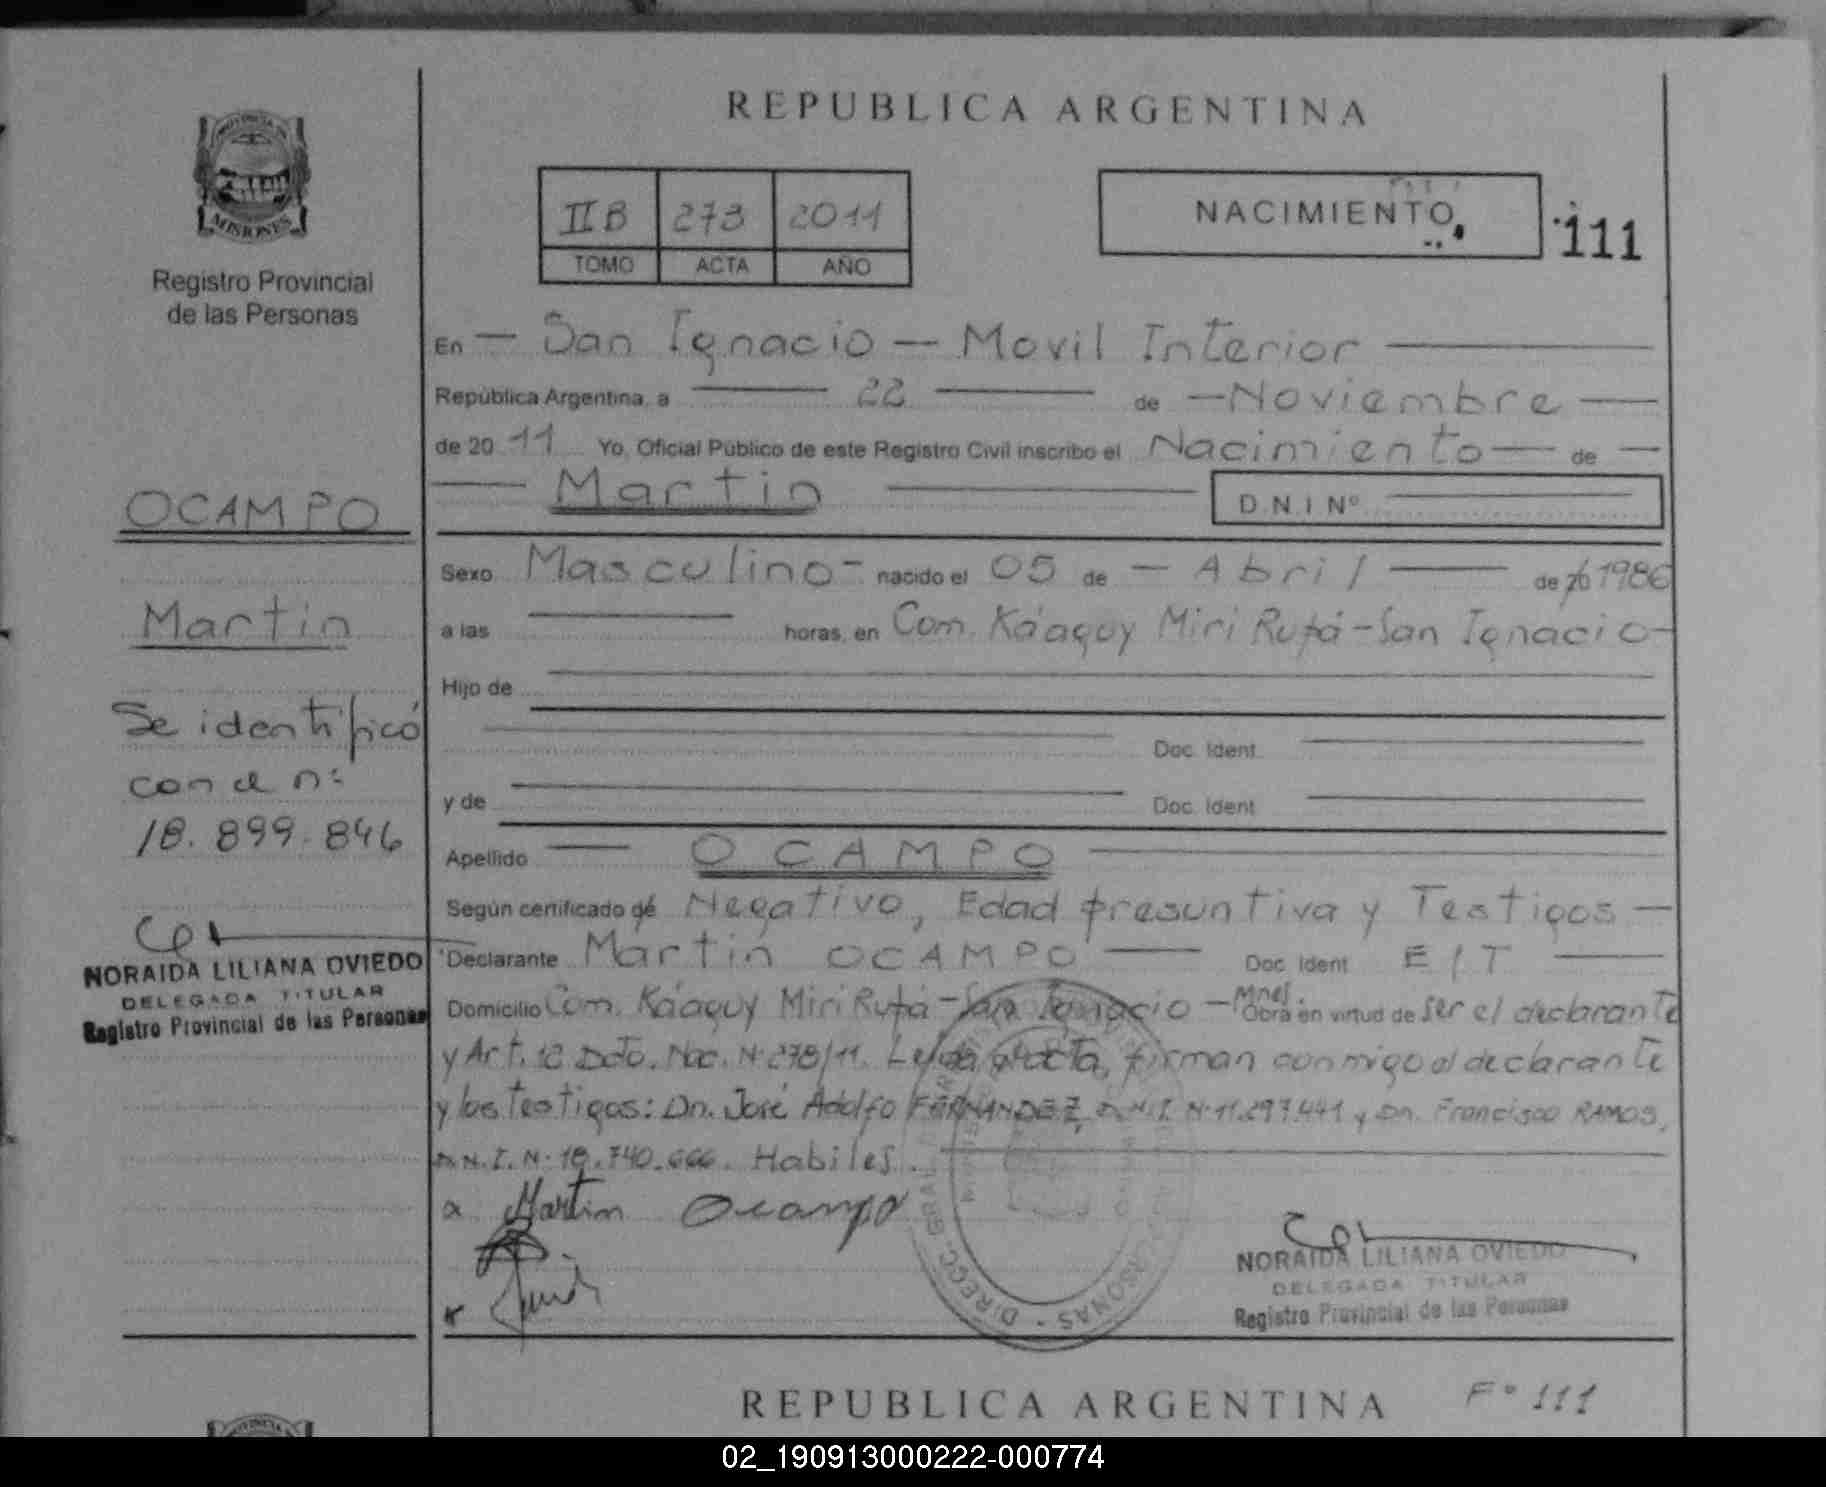 REPUBLICA ARGENTINA
PROVINCIA DE
MISIONES
Registro Provincial
de las Personas
II B 273 2011
TOMO ACTA AÑO
NACIMIENTO
111
En — San Ignacio — Movil Interior —
República Argentina, a — 22 — de — Noviembre —
de 20 11 Yo, Oficial Público de este Registro Civil inscribo el Nacimiento — de —
— Martin — D.N.I Nº —
Sexo Masculino - nacido el 05 de — Abril — de 20 1986
a las — horas, en Com. Ká'aguy Miri Rupá - San Ignacio -
Hijo de —
— Doc. Ident. —
y de — Doc. Ident. —
Apellido — OCAMPO —
Según certificado de Negativo, Edad presuntiva y Testigos —
Declarante Martin OCAMPO — Doc. Ident E/T —
Domicilio Com. Ká'aguy Miri Rupá - San Ignacio - Mnes. Obra en virtud de ser el declarante
y Art. 12 Dcto. Nac. N. 278/11. Leída el acta, firman conmigo el declarante
y los testigos: Dn. José Adolfo FERNANDEZ, D.N.I. N. 11.297.441 y Dn. Francisco RAMOS,
D.N.I. N. 18.740.666. Habiles. —
x Martin Ocampo
NORAIDA LILIANA OVIEDO
DELEGADA TITULAR
Registro Provincial de las Personas
OCAMPO
Martin
Se identificó
con el nº
18.899.846
NORAIDA LILIANA OVIEDO
DELEGADA TITULAR
Registro Provincial de las Personas
REPUBLICA ARGENTINA
Fº 111
02_190913000222-000774